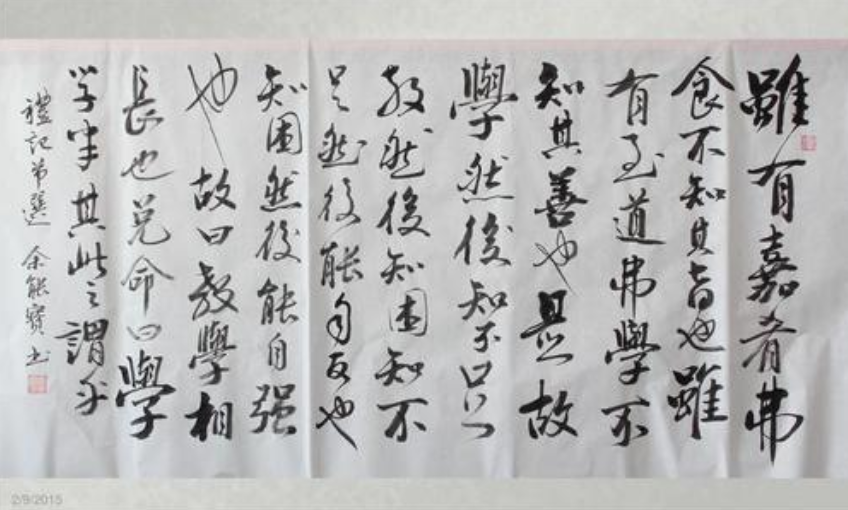 雖有嘉肴弗
食不知其旨也雖
有至道弗學不
知其善也是故
學然後知不足
教然後知困知不
足然後能自反也
知困然後能自强
也故曰教學相
長也兑命曰學
学半其此之謂乎
禮記节選 余能寶书
2/9/2015